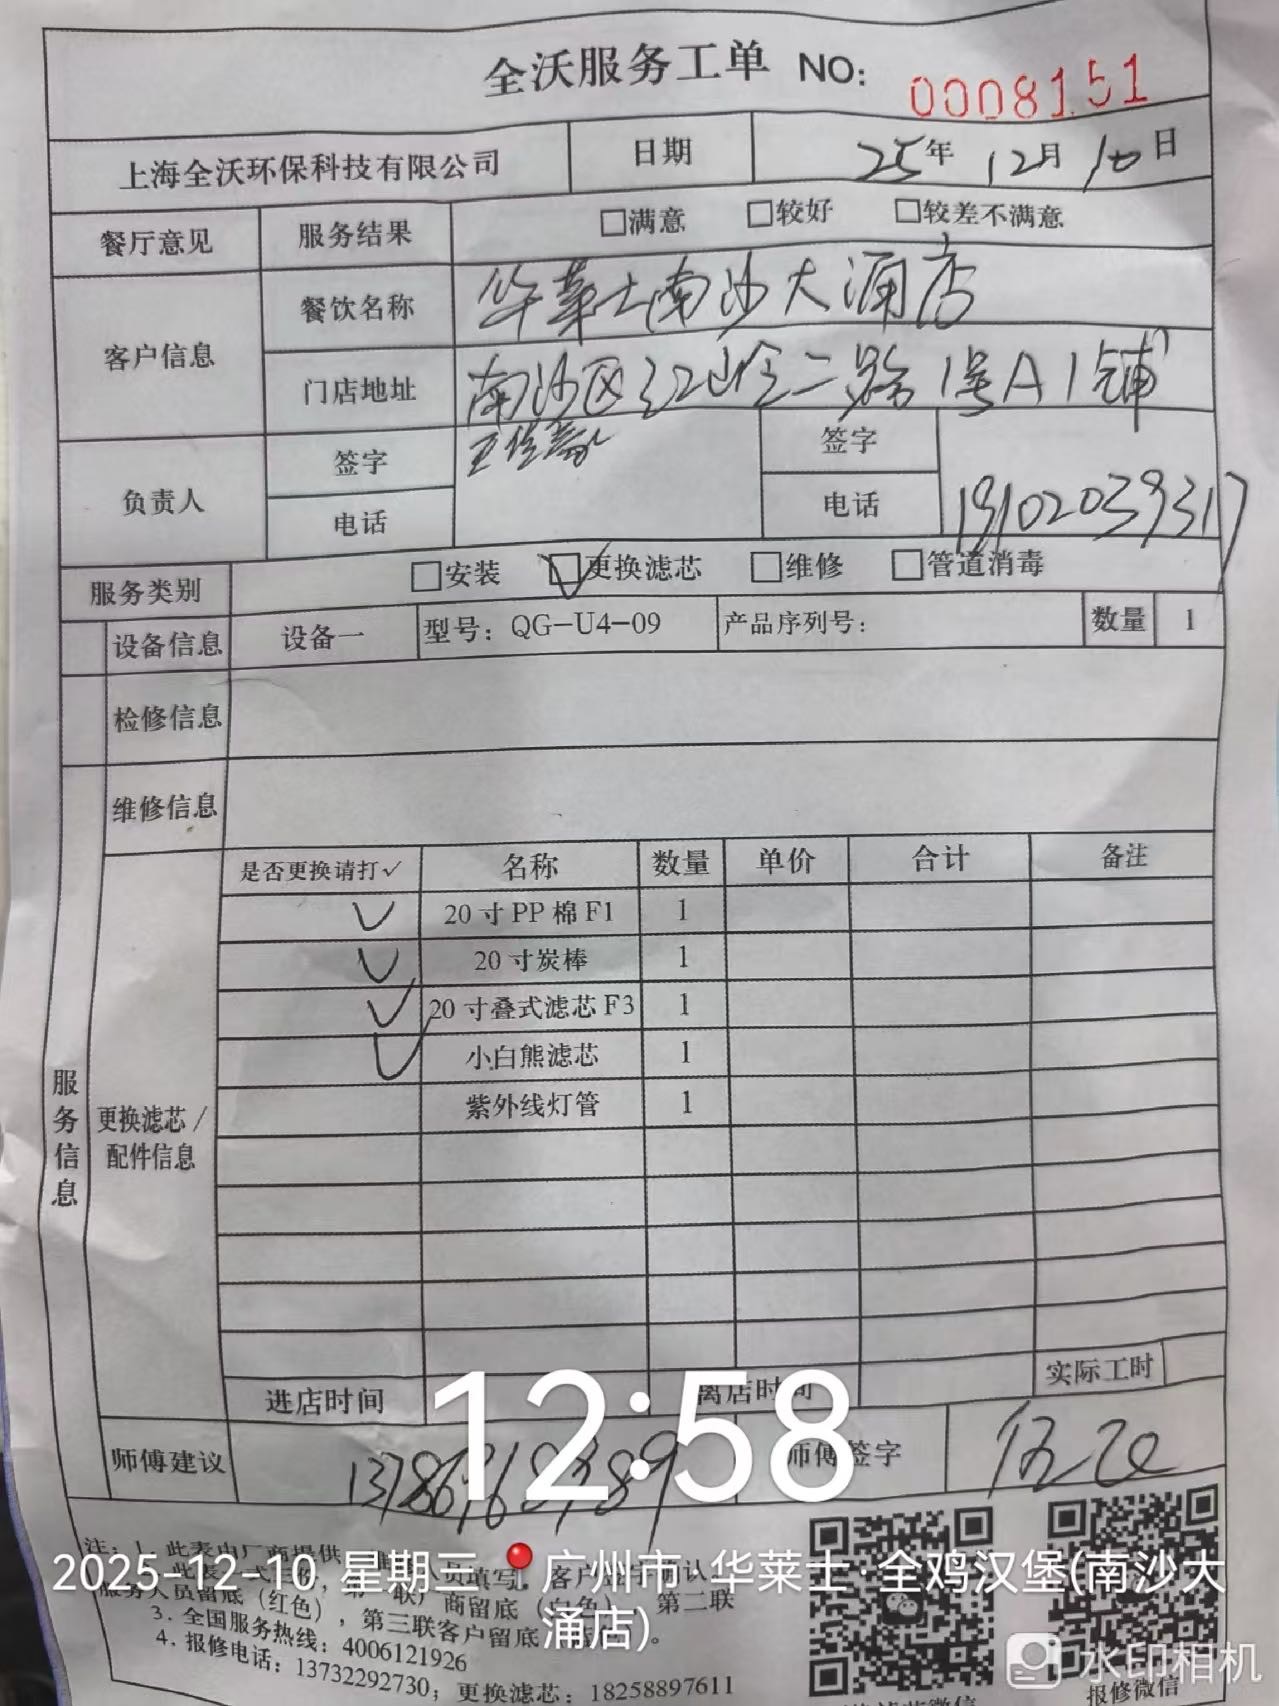 全沃服务工单 NO: 0008151
上海全沃环保科技有限公司 日期 25年 12月 10日
餐厅意见 服务结果 □满意 □较好 □较差不满意
客户信息 餐饮名称 华莱士南沙大涌店
门店地址 南沙区 二路1号A1铺
负责人 签字 签字
电话 电话 19102039317
服务类别 □安装 ☑更换滤芯 □维修 □管道消毒
设备信息 设备一 型号：QG-U4-09 产品序列号： 数量 1
检修信息
维修信息
服务信息
更换滤芯/配件信息
是否更换请打✓ 名称 数量 单价 合计 备注
✓ 20寸PP棉F1 1
✓ 20寸炭棒 1
✓ 20寸叠式滤芯F3 1
✓ 小白熊滤芯 1
紫外线灯管 1
进店时间 离店时间 实际工时
12:58
师傅建议 师傅签字
注：1．此表由厂商提供
2025-12-10 星期三 广州市·华莱士·全鸡汉堡(南沙大涌店)
服务人员留底（红色），第 联厂商留底（白色） 第二联
3．全国服务热线：4006121926 第三联客户留底
4．报修电话：13732292730；更换滤芯：18258897611
报修微信
水印相机